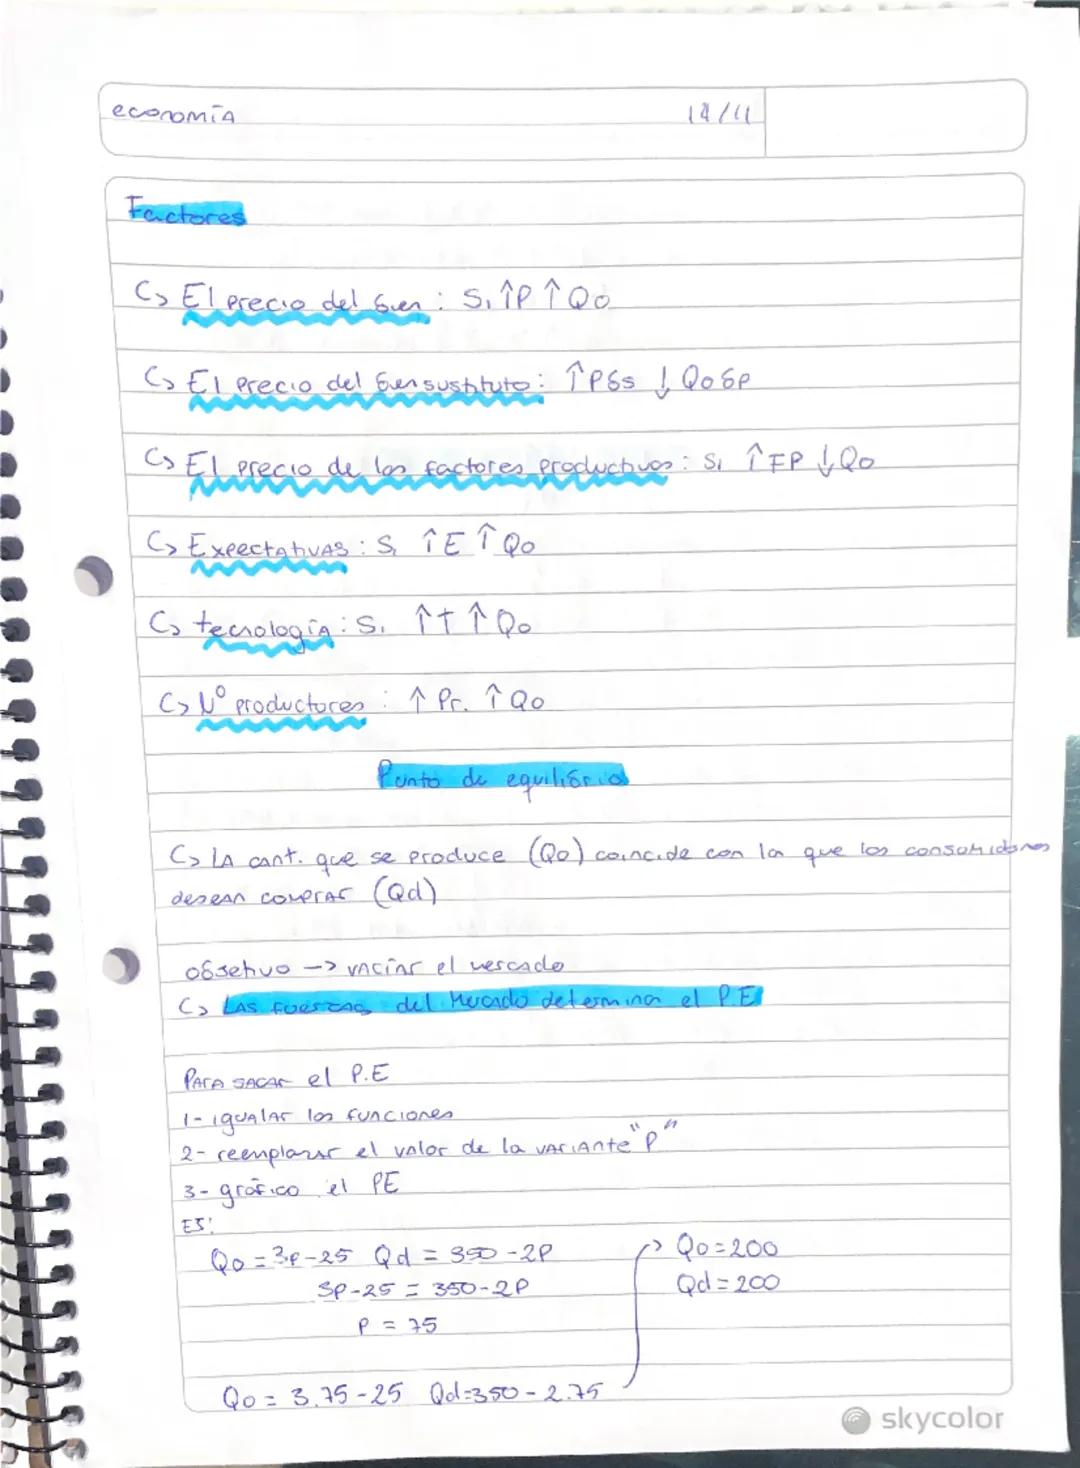 economía 14/11
Factores
El precio del bien: Si ↑P ↑Qo
El precio del bien sustituto: ↑Pbs ↓Qobp
El precio de los factores productivos: Si ↑FP ↓Qo
Expectativas: Si ↑E ↑Qo
tecnología: Si ↑t ↑Qo
Nº productores: ↑Pr. ↑Qo
Punto de equilibrio
La cant. que se produce (Qo) coincide con la que los consumidores
desean comprar (Qd)
objetivo -> vaciar el mercado
Las fuerzas del Mercado determinan el P.E
Para sacar el P.E
1- igualar las funciones
2- reemplazar el valor de la variante "P"
3- gráfico el PE
EJ:
Qo = 3p-25 Qd = 350-2P
3p-25 = 350-2P
P = 75
Qo = 3.75-25 Qd=350-2.75
Qo=200
Qd=200
skycolor